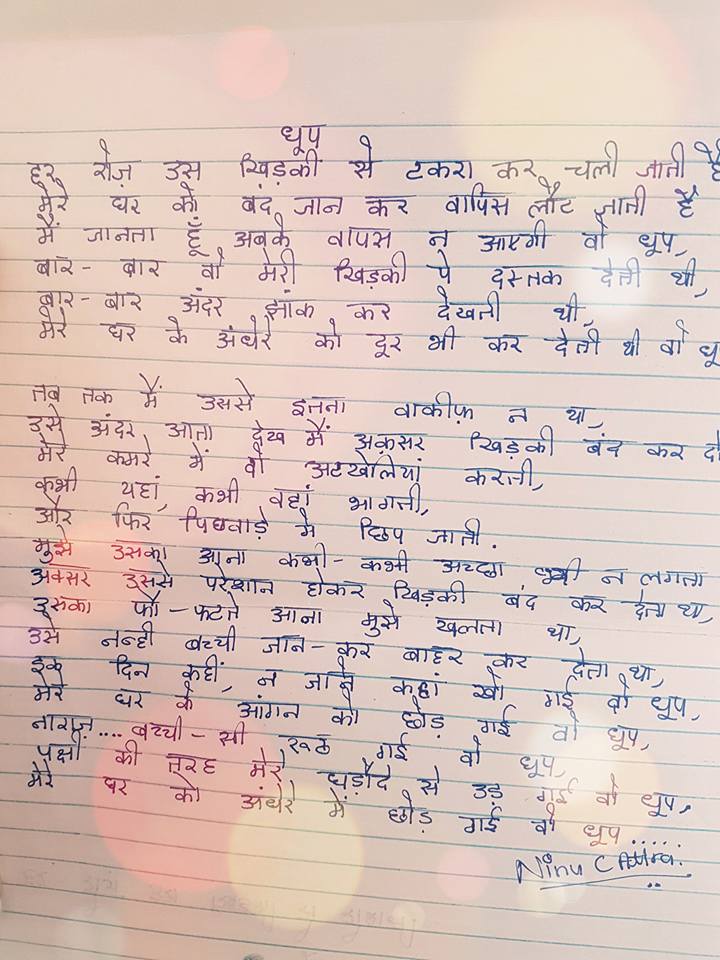 धूप
हर रोज़ उस खिड़की से टकरा कर चली जाती है
मेरे घर को बंद जान कर वापिस लौट जाती है
मैं जानता हूँ अबके वापस न आएगी वो धूप,
बार-बार वो मेरी खिड़की पे दस्तक देती थी,
बार-बार अंदर झांक कर देखती थी,
मेरे घर के अंधेरे को दूर भी कर देती थी वो धू
तब तक मैं उससे इतना वाकीफ़ न था,
उसे अंदर आता देख मैं अक़सर खिड़की बंद कर दे
मेरे कमरे में वो अटखेलियां करती,
कभी यहां, कभी वहां भागती,
और फिर पिछवाड़े में छिप जाती.
मुझे उसका आना कभी-कभी अच्छा भी न लगता
अक्सर उससे परेशान होकर खिड़की बंद कर देता था,
उसका पौ-फटते आना मुझे खलता था,
उसे नन्ही बच्ची जान-कर बाहर कर देता था,
इक दिन कहीं, न जाने कहां खो गई वो धूप,
मेरे घर के आंगन को छोड़ गई वो धूप,
नाराज़.... बच्ची-सी रूठ गई वो धूप,
पक्षी की तरह मेरे घड़ौंदे से उड़ गई वो धूप,
मेरे घर को अंधेरे में छोड़ गई वो धूप.....
Ninu